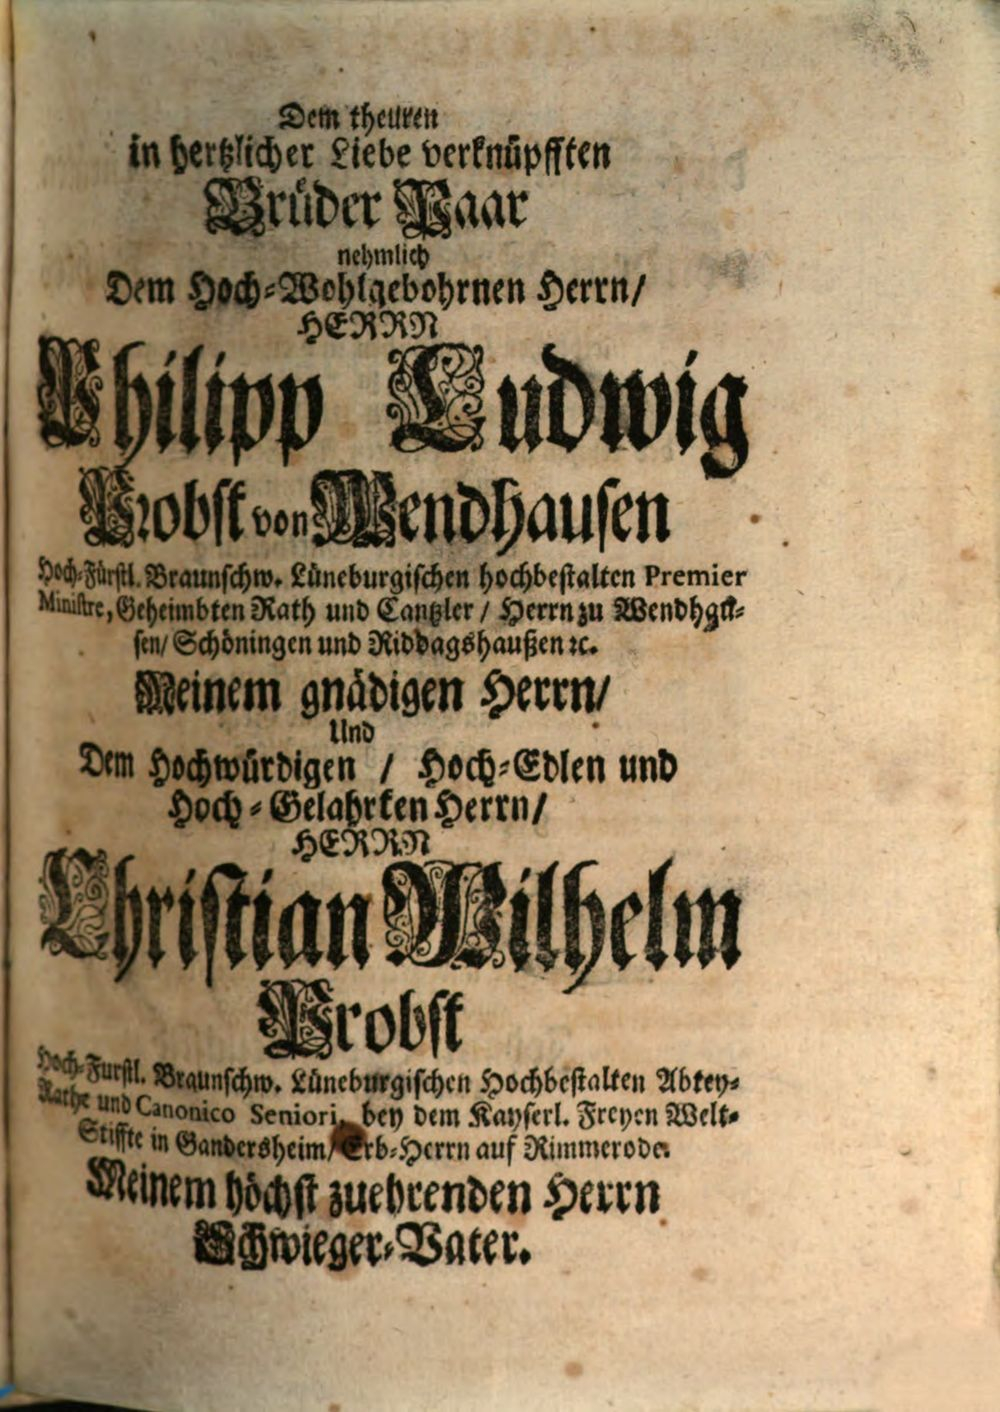 Dem theuren
in hertzlicher Liebe verknüpfften
Brüder Paar
nehmlich
Dem Hoch-Wohlgebohrnen Herrn/
HERRN
Philipp Ludwig
Probst von Wendhausen
Hoch-Fürstl. Braunschw. Lüneburgischen hochbestalten Premier
Ministre, Geheimbten Rath und Cantzler / Herrn zu Wendhau-
sen/ Schöningen und Riddagshaußen ꝛc.
Meinem gnädigen Herrn/
Und
Dem Hochwürdigen / Hoch-Edlen und
Hoch-Gelahrten Herrn/
HERRN
Christian Wilhelm
Probst
Hoch-Fürstl. Braunschw. Lüneburgischen Hochbestalten Abtey-
Rathe und Canonico Seniori, bey dem Kayserl. Freyen Welt-
Stiffte in Gandersheim/ Erb-Herrn auf Rimmerode.
Meinem höchst zuehrenden Herrn
Schwieger-Vater.